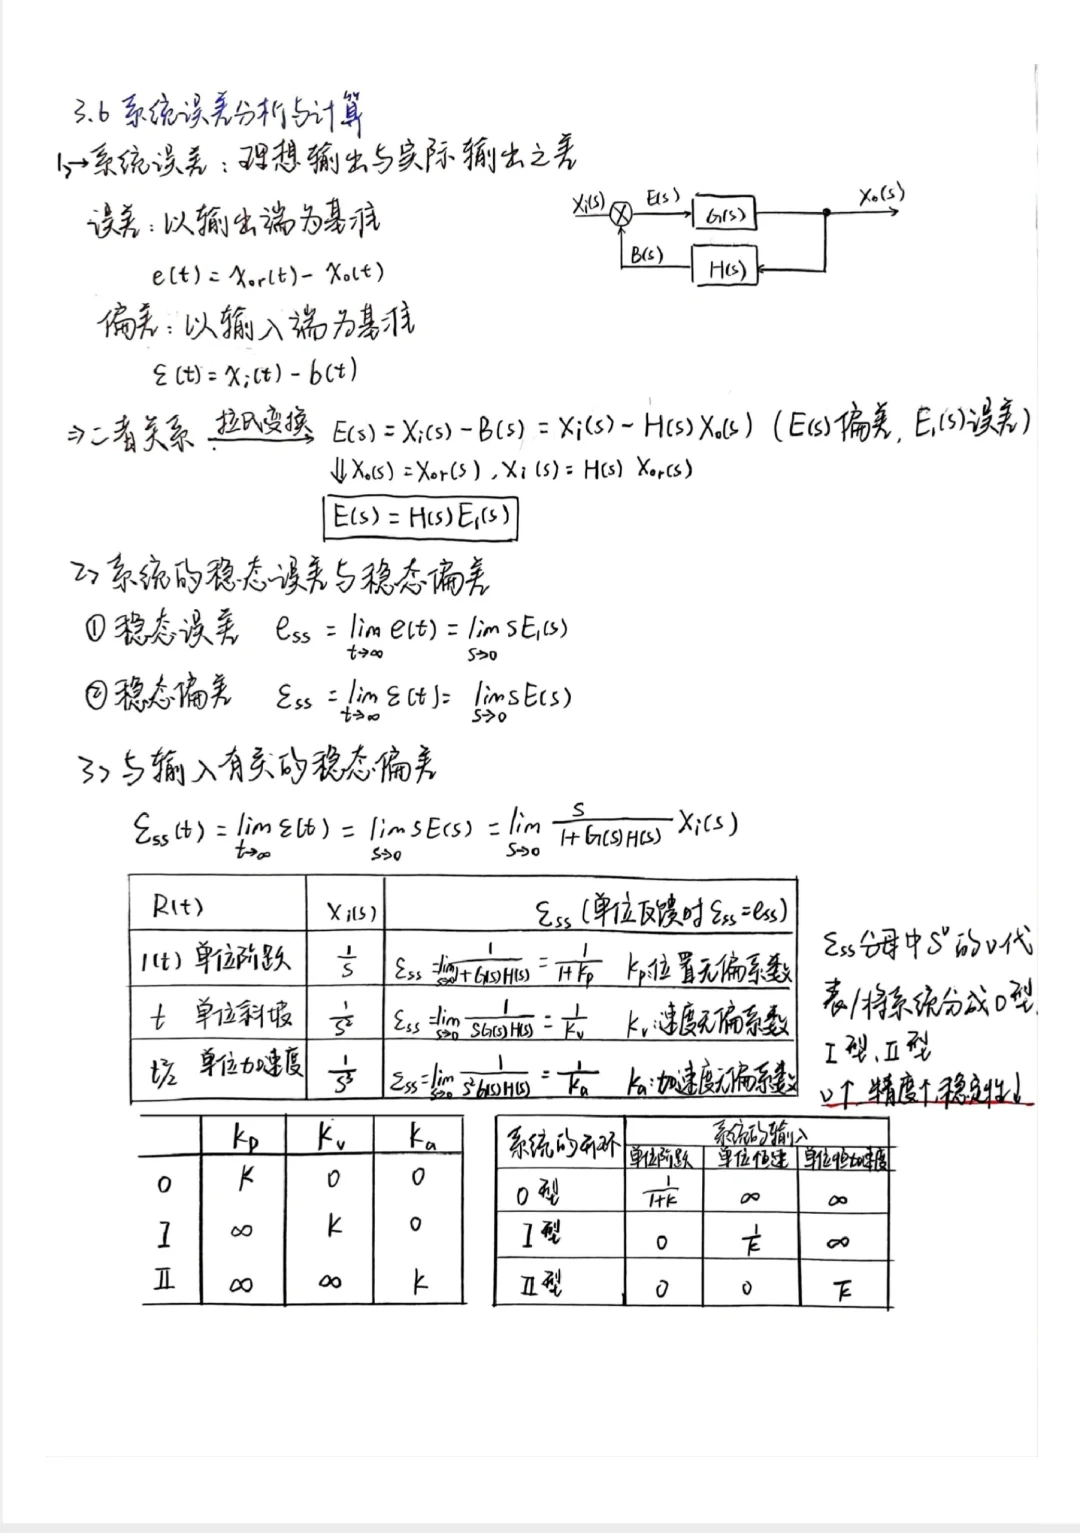 3.6 系统误差分析与计算
1>→系统误差：理想输出与实际输出之差
误差：以输出端为基准
e(t) = Xor(t) - Xo(t)
Xi(s) E(s) G(s) Xo(s)
B(s) H(s)
偏差：以输入端为基准
ε(t) = Xi(t) - b(t)
⇒二者关系 拉氏变换→ E(s) = Xi(s) - B(s) = Xi(s) - H(s)Xo(s) (E(s)偏差, E₁(s)误差)
⇓ Xo(s) = Xor(s), Xi(s) = H(s) Xor(s)
E(s) = H(s)E₁(s)
2> 系统的稳态误差与稳态偏差
① 稳态误差 ess = lim t→∞ e(t) = lim s→0 sE₁(s)
② 稳态偏差 εss = lim t→∞ ε(t) = lim s→0 sE(s)
3> 与输入有关的稳态偏差
εss(t) = lim t→∞ ε(t) = lim s→0 sE(s) = lim s→0 s/(1+G(s)H(s)) Xi(s)
R(t) Xi(s) εss (单位反馈时 εss=ess)
1(t) 单位阶跃 1/s εss = lim s→0 1/(1+G(s)H(s)) = 1/(1+Kp) Kp:位置无偏系数
t 单位斜坡 1/s² εss = lim s→0 1/(sG(s)H(s)) = 1/Kv Kv:速度无偏系数
t²/2 单位加速度 1/s³ εss = lim s→0 1/(s²G(s)H(s)) = 1/Ka Ka:加速度无偏系数
εss分母中sᵛ的ν代
表/将系统分成0型
I型、II型
ν↑ 精度↑,稳定性↓
Kp Kv Ka
0 K 0 0
I ∞ K 0
II ∞ ∞ K
系统的开环 系统的输入
单位阶跃 单位恒速 单位恒加速度
0型 1/(1+K) ∞ ∞
I型 0 1/K ∞
II型 0 0 1/K